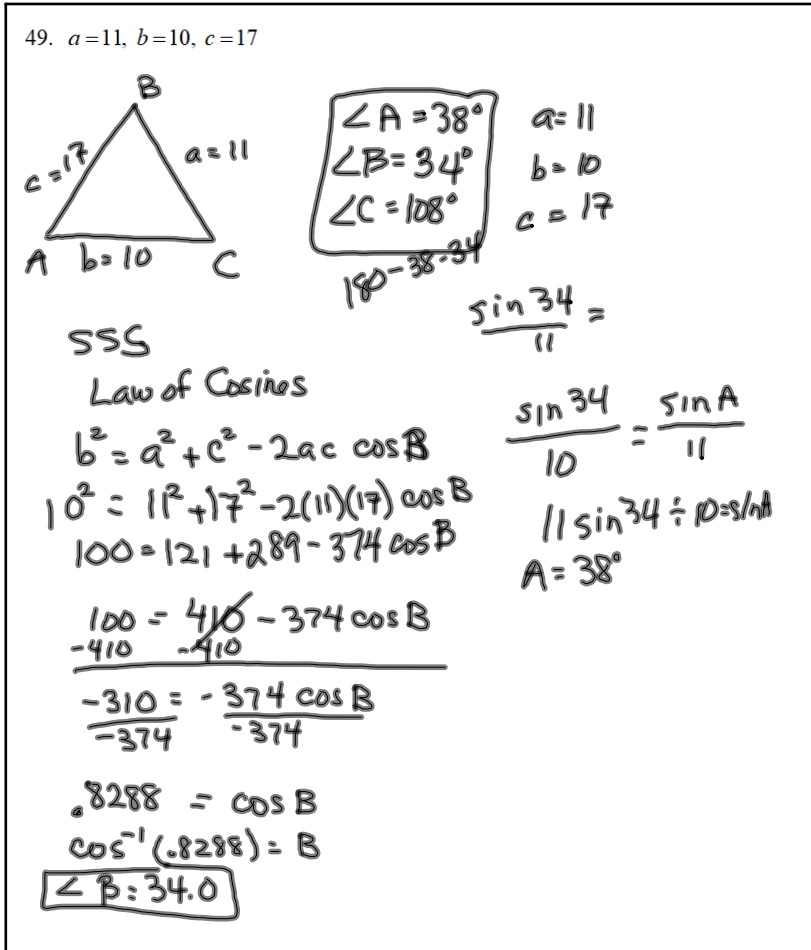 49. a=11, b=10, c=17
B
c=17
a=11
A b=10 C
∠A=38°
∠B=34°
∠C=108°
180-38-34
a=11
b=10
c=17
SSS
Law of Cosines
b²=a²+c²-2ac cosB
10²=11²+17²-2(11)(17)cosB
100=121+289-374cosB
100=410-374cosB
-410 -410
-310=-374cosB
-374 -374
.8288=cosB
cos⁻¹(.8288)=B
∠B=34.0
sin34/11=
sin34/10=sinA/11
11sin34÷10=sinA
A=38°